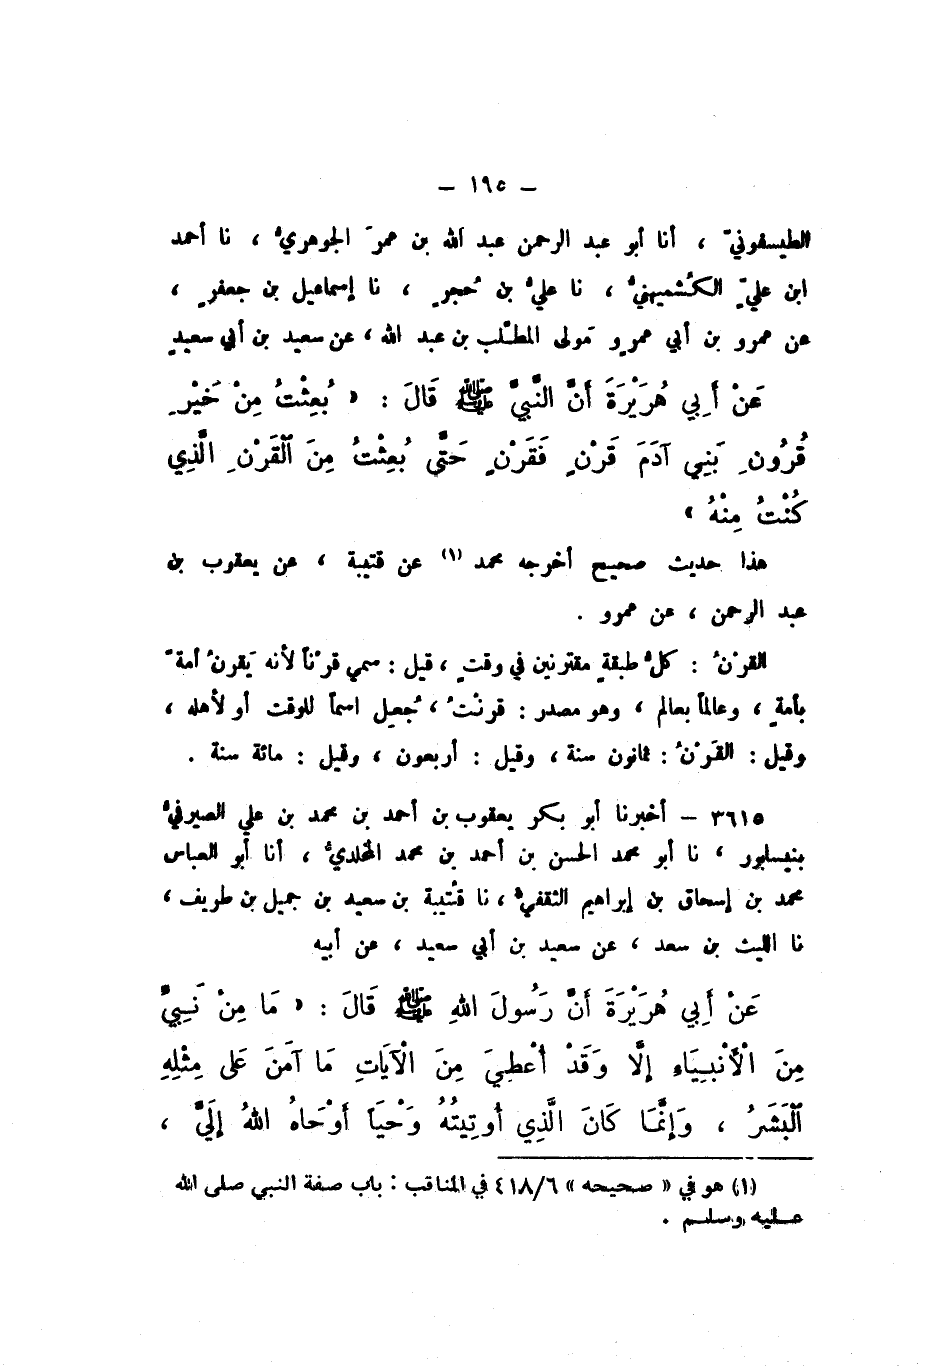 – ١٩٥ –
الطيسفونيّ ، أنا أبو عبد الرحمن عبد الله بن عمرَ الجوهريُّ ، نا أحمد
ابن عليٍّ الكُشميهنيُّ ، نا عليُّ بن حُجرٍ ، نا إسماعيل بن جعفرٍ ،
عن عمرو بن أبي عمرٍو مَولى المطّلب بن عبد الله ، عن سعيد بن أبي سعيدٍ
عَنْ أَبِي هُرَيْرَةَ أَنَّ النَّبِيَّ ﷺ قَالَ : « بُعِثْتُ مِنْ خَيْرِ
قُرُونِ بَنِي آدَمَ قَرْنٍ فَقَرْنٍ حَتَّى بُعِثْتُ مِنَ ٱلْقَرْنِ الَّذِي
كُنْتُ مِنْهُ »
هذا حديث صحيح أخرجه محمد (١) عن قتيبة ، عن يعقوب بن
عبد الرحمن ، عن عمرو .
القرْنُ : كلُّ طبقةٍ مقترنين في وقتٍ ، قيل : سمي قرْناً لأنه يَقرنُ أمةً
بأمةٍ ، وعالماً بعالم ، وهو مصدر : قرنْتُ ، جُعل اسماً للوقت أو لأهله ،
وقيل : القَرْنُ : ثمانون سنة ، وقيل : أربعون ، وقيل : مائة سنة .
٣٦١٥ – أخبرنا أبو بكر يعقوب بن أحمد بن محمد بن علي الصيرفيُّ
بنيسابور ، نا أبو محمد الحسن بن أحمد بن محمد المخلديُّ ، أنا أبو العباس
محمد بن إسحاق بن إبراهيم الثقفيُّ ، نا قُتيبة بن سعيد بن جميل بن طريف ،
نا الليث بن سعد ، عن سعيد بن أبي سعيد ، عن أبيه
عَنْ أَبِي هُرَيْرَةَ أَنَّ رَسُولَ اللهِ ﷺ قَالَ : « مَا مِنْ نَبِيٍّ
مِنَ الْأَنْبِيَاءِ إِلَّا وَقَدْ أُعْطِيَ مِنَ الْآيَاتِ مَا آمَنَ عَلَى مِثْلِهِ
ٱلْبَشَرُ ، وَإِنَّمَا كَانَ الَّذِي أُوتِيتُهُ وَحْيَاً أَوْحَاهُ اللهُ إِلَيَّ ،
(١) هو في « صحيحه » ٤١٨/٦ في المناقب : باب صفة النبي صلى الله
عليه وسلم .